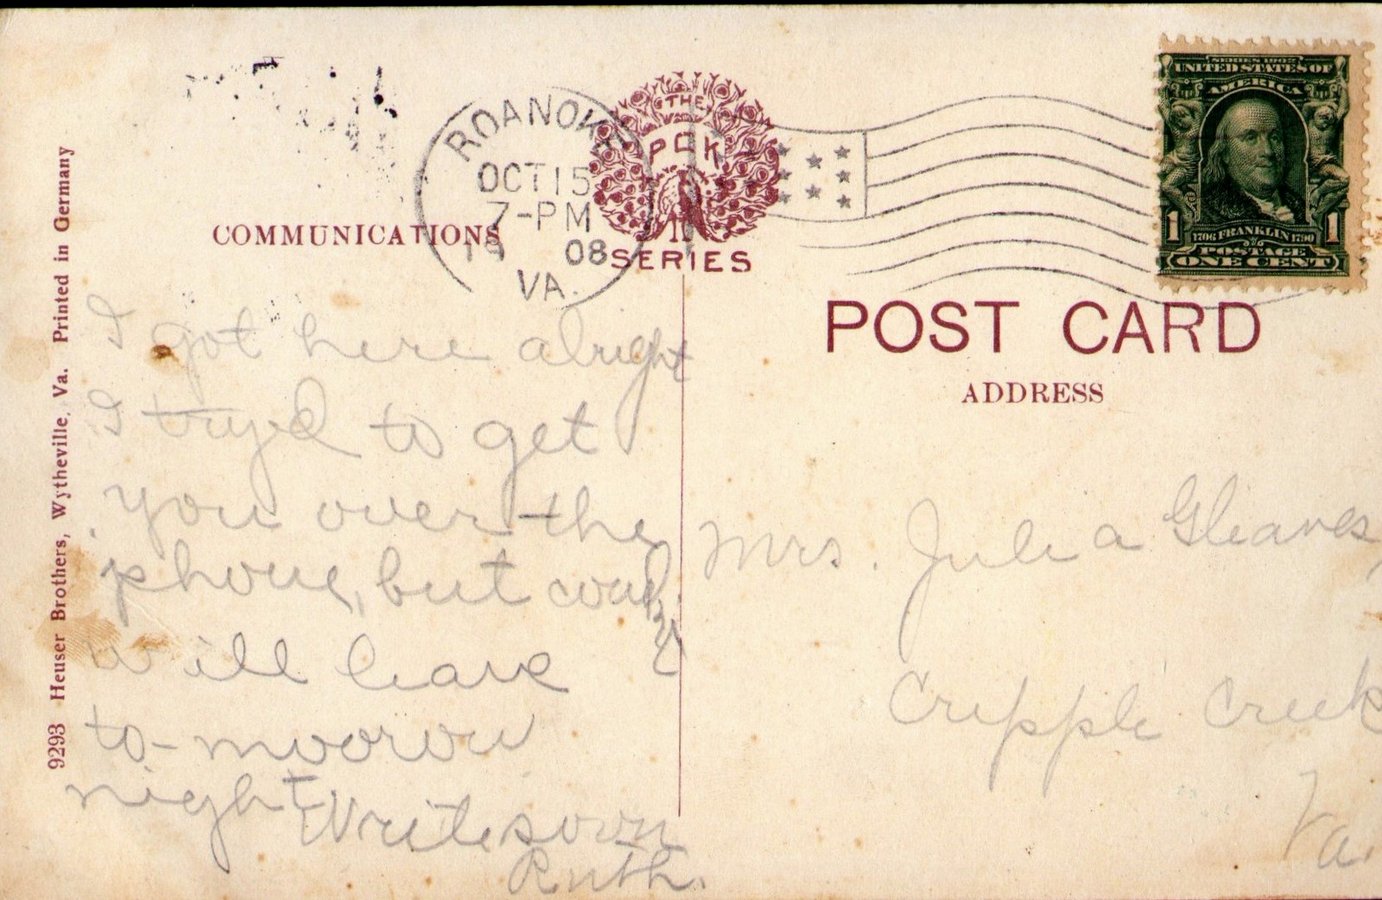 THE
P C K
SERIES
ROANOKE
OCT 15
7-PM
19 08
VA.
SERIES 1902
UNITED STATES OF
AMERICA
1 1
1706 FRANKLIN 1790
POSTAGE
ONE CENT
COMMUNICATIONS
POST CARD
ADDRESS
9293 Heuser Brothers, Wytheville, Va. Printed in Germany
I got here alright
I tryed to get
you over the
phone, but
will leave
to-moorow
night
Write soon
Ruth.
Mrs. Julia Gleaves,
Cripple Creek
Va.